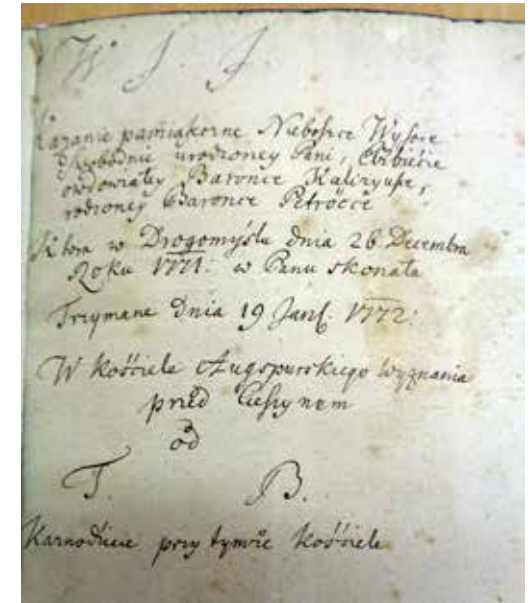 W. J. J.
Kazanie pamiątkorne Nieboszce Wysoce
Swobodnie urodzoney Pani, Elzbiecie
owdowiałey Baronce Kaliszyuſe,
rodzoney Baronce Petröcce
Ktora w Drogomyślu dnia 26 Decembra
Roku 1771: w Panu skonała
Trzymane dnia 19 Jan. 1772:
W kośćiele Augspurskiego Wyznania
przed Cieszynem
od
T. B.
Karnodźieie przy tymże kośćiele